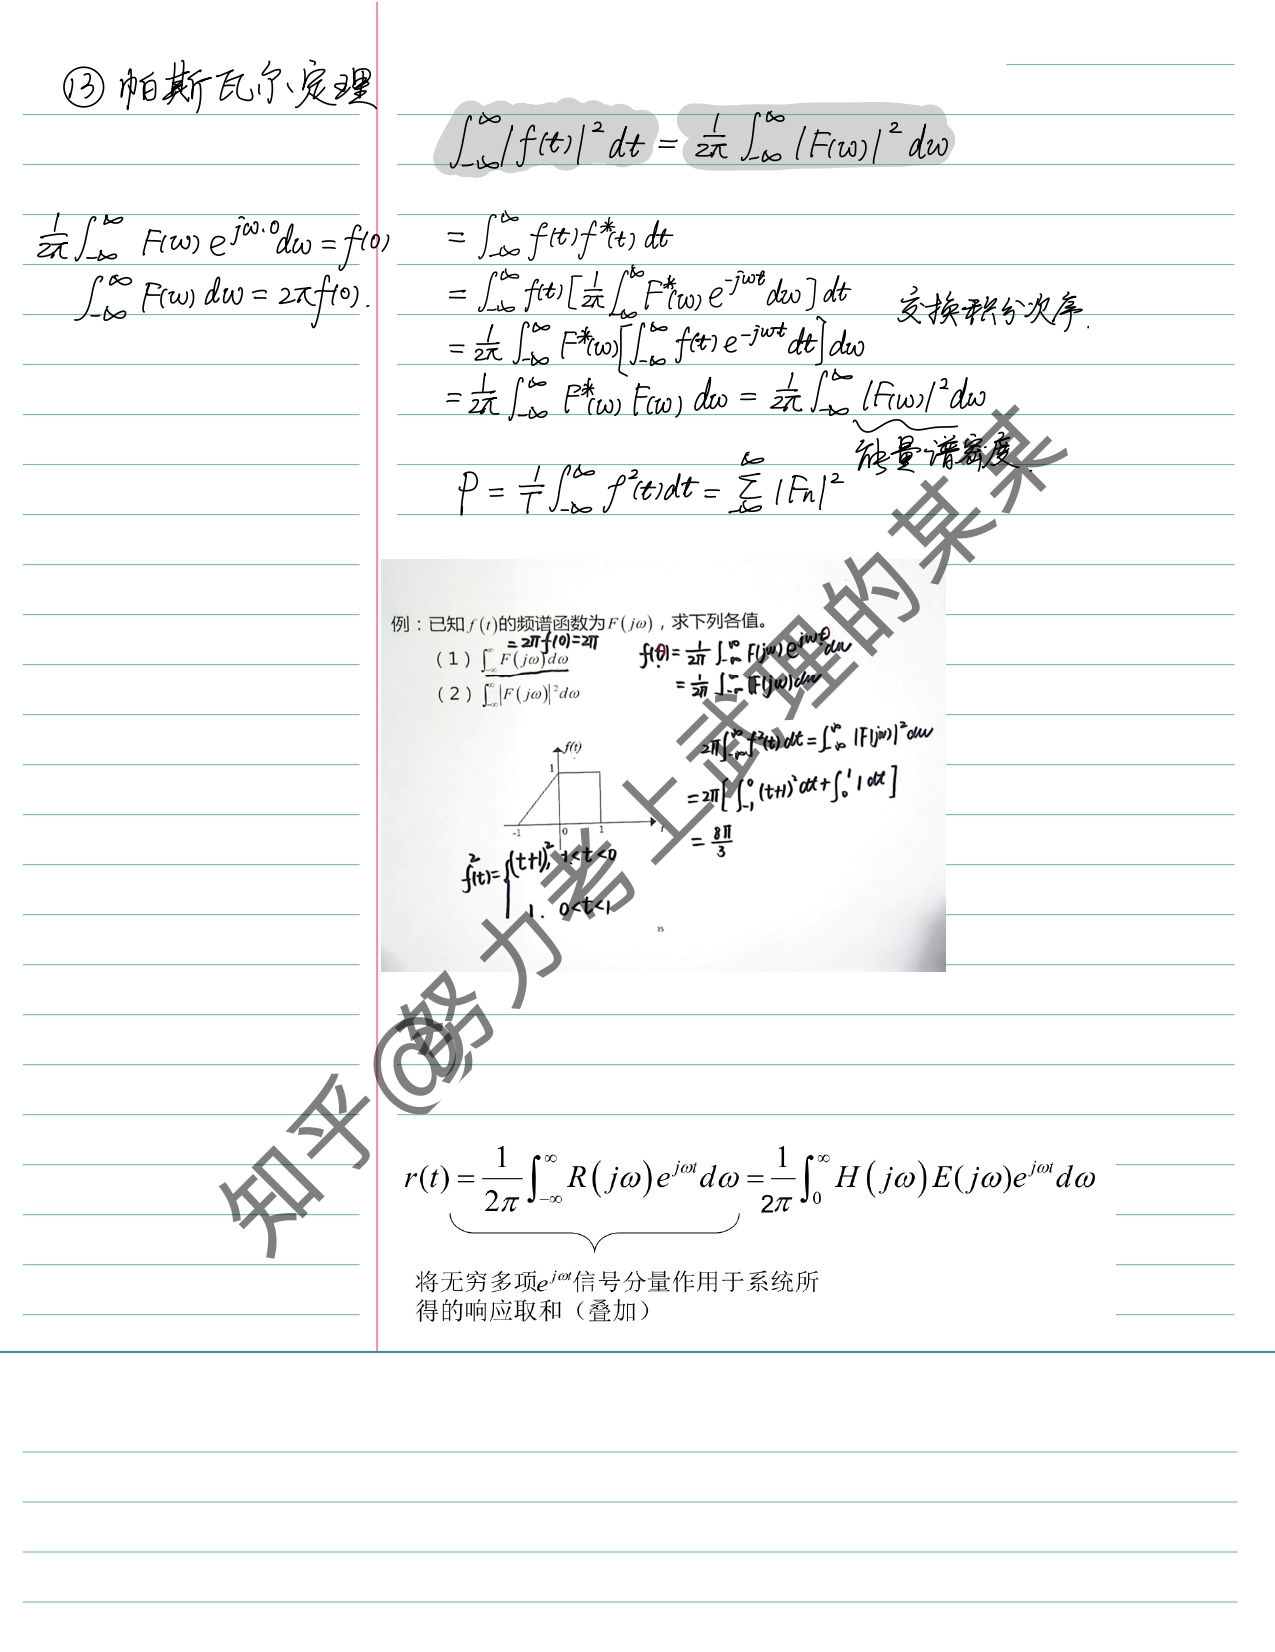 ⑬ 帕斯瓦尔定理
∫_{-∞}^{∞} |f(t)|² dt = 1/2π ∫_{-∞}^{∞} |F(ω)|² dω
1/2π ∫_{-∞}^{∞} F(ω) e^{jω·0} dω = f(0)
∫_{-∞}^{∞} F(ω) dω = 2πf(0).
= ∫_{-∞}^{∞} f(t) f*(t) dt
= ∫_{-∞}^{∞} f(t) [1/2π ∫_{-∞}^{∞} F*(ω) e^{-jωt} dω] dt
交换积分次序.
= 1/2π ∫_{-∞}^{∞} F*(ω) [∫_{-∞}^{∞} f(t) e^{-jωt} dt] dω
= 1/2π ∫_{-∞}^{∞} F*(ω) F(ω) dω = 1/2π ∫_{-∞}^{∞} |F(ω)|² dω
能量谱密度.
P = 1/T ∫_{-∞}^{∞} f²(t) dt = ∑_{-∞}^{∞} |Fn|²
例：已知 f(t) 的频谱函数为 F(jω)，求下列各值。
= 2πf(0) = 2π
（1）∫_{-∞}^{∞} F(jω) dω
（2）∫_{-∞}^{∞} |F(jω)|² dω
f(0) = 1/2π ∫_{-∞}^{∞} F(jω) e^{jω0} dω
= 1/2π ∫_{-∞}^{∞} F(jω) dω
2π ∫_{-∞}^{∞} f²(t) dt = ∫_{-∞}^{∞} |F(jω)|² dω
= 2π [∫_{-1}^{0} (t+1)² dt + ∫_{0}^{1} 1 dt]
= 8π/3
f(t)
1
-1 0 1 t
f²(t) = { (t+1)², -1<t<0
1. 0<t<1
35
r(t) = 1/2π ∫_{-∞}^{∞} R(jω) e^{jωt} dω = 1/2π ∫_{0}^{∞} H(jω) E(jω) e^{jωt} dω
将无穷多项e^{jωt}信号分量作用于系统所
得的响应取和（叠加）
知乎@努力考上武理的某某